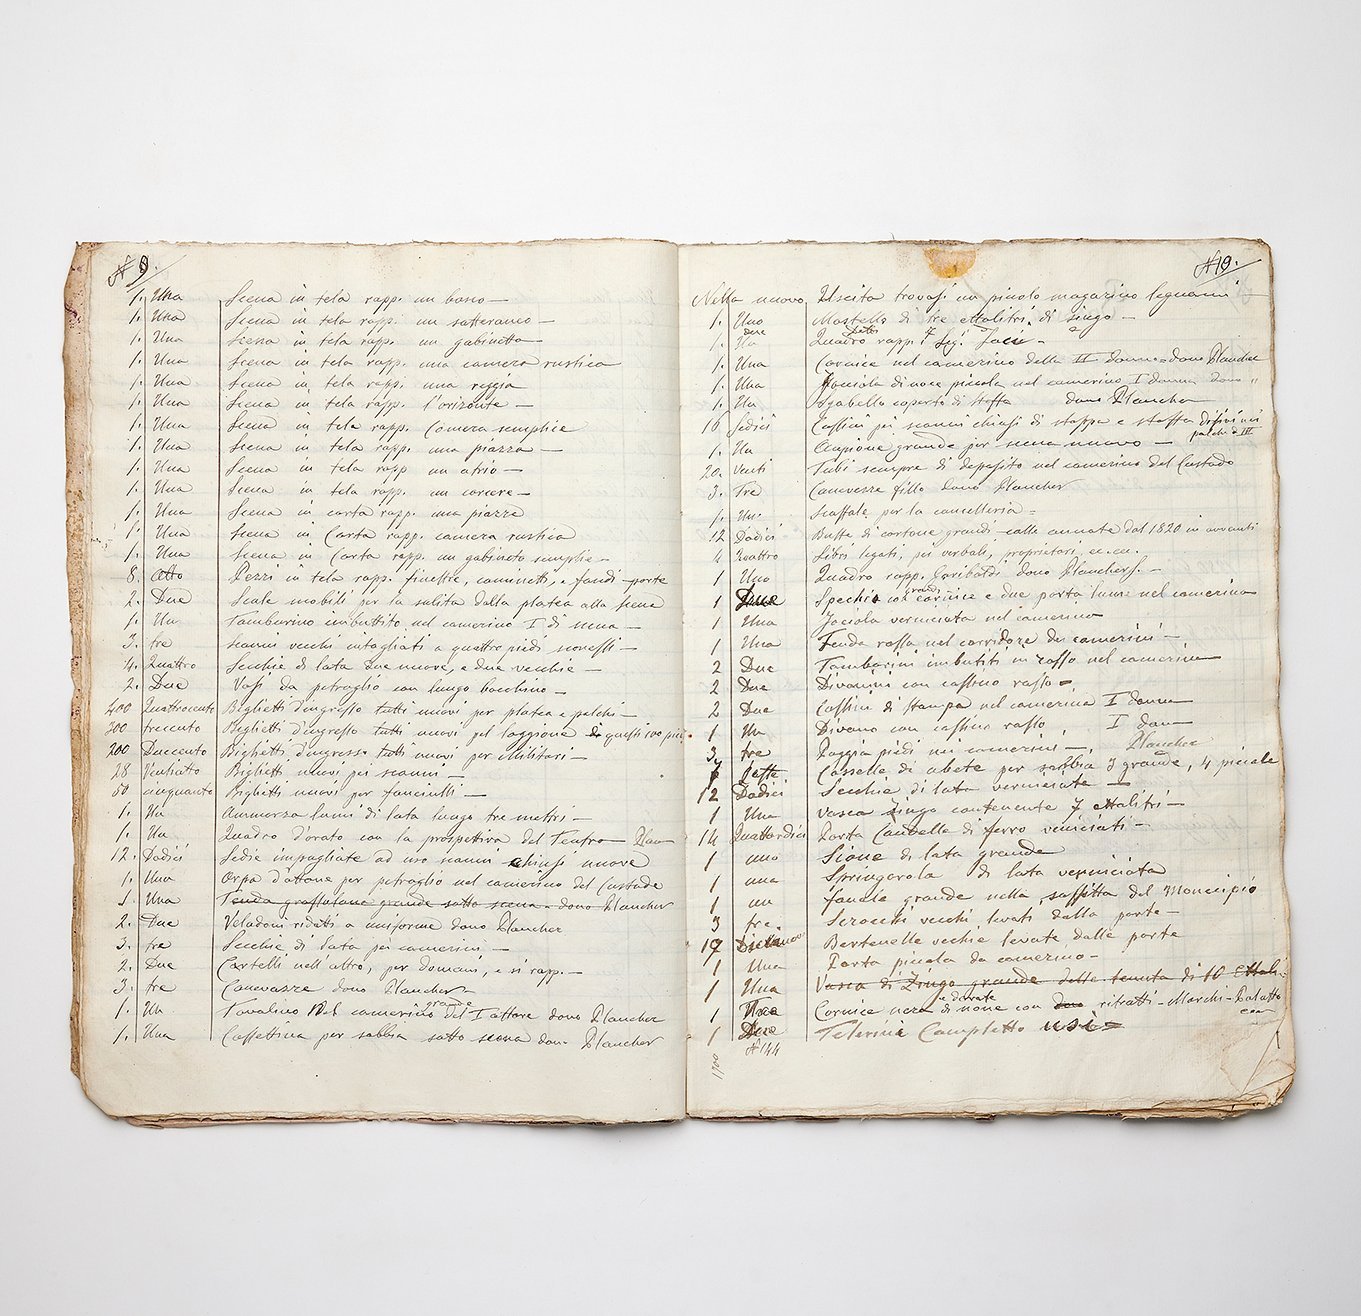 N 9.
1. Una Scena in tela rapp. un bosco —
1. Una Scena in tela rapp. un sotteraneo —
1. Una Scena in tela rapp. un gabinetto —
1. Una Scena in tela rapp. una camera rustica
1. Una Scena in tela rapp. una reggia
1. Una Scena in tela rapp. l'orizonte —
1. Una Scena in tela rapp. Camera semplice
1. Una Scena in tela rapp. una piazza —
1. Una Scena in tela rapp. un atrio —
1. Una Scena in tela rapp. un carcere —
1. Una Scena in carta rapp. una piazza
1. Una Scena in Carta rapp. camera rustica
1. Una Scena in Carta rapp. un gabineto semplice —
8. Otto Pezzi in tela rapp. finestre, caminetti, e fondi porte
2. Due Scale mobili per la salita dalla platea alla scena
1. Un Tamburino imbuttito nel camerino I di scena —
3. tre scanni vecchi intagliati a quattro piedi
4. Quattro Secchie di lata due nuove, e due vecchie —
2. Due Vasi da petroglio con lungo bocchino —
400 Quattrocento Biglietti d'ingresso tutti nuovi per platea e palchi —
300 trecento Biglietti d'ingresso tutti nuovi pel loggione di questi 100
200 Duecento Biglietti d'ingresso tutti nuovi per Militari —
28 Ventiotto Biglietti nuovi pei scanni —
50 cinquanta Biglietti nuovi per fanciulli —
1. Un Ammorza lumi di lata lungo tre metri —
1. Un Quadro d'orato con la prospettiva del Teatro —
12. Dodici Sedie impagliate ad uso scanni chiusi nuove
1. Una d'ottone per petroglio nel camerino del Custode
1. Una Tenda grande sotto scena - dono Plancher
2. Due Veladoni ridotti a uniforme dono Plancher
3. tre Secchie di lata pei camerini —
2. Due Cartelli nell'altro, per domani, e si rapp. —
3. tre Canevazze dono Plancher
1. Un Tavolino Nel camerino grande del I attore dono Plancher
1. Una Cassettina per sabbia sotto scena dono Plancher
N 10.
Nella nuova Uscita trovasi un piccolo magazino legnami
1. Uno Mastello di tre ettalitri, di zingo —
1. Quadro rapp.
1. Una Cornice nel camerino della II donna - dono Plancher
1. Una di noce piccola nel camerino I donna dono "
1. Un Sgabello coperto di stoffa dono Plancher
16 Sedici Cussini pei scanni chiusi di stoppa e stoffa
palchi III
1. Un grande per scena nuovo —
20. Venti Tubi sempre di deposito nel camerino del Custode
3. Tre Canevazze filo dono Plancher
1. Un. Scaffale per la cancelleria =
12 Dodici Buste di cartone grandi colle annate dal 1820 in avanti
4 Quattro Libri legati, pei verbali, proprietari, ec. ec.
1 Uno Quadro rapp. Garibaldi dono Plancher. —
1 Specchio con grande cornice e due porta lume nel camerino
1 Una verniciata nel camerino
1 Una Tenda rossa nel corridore dei camerini —
2 Due Tamburini imbutiti in rosso nel camerino —
2 Due Divanini con cussino rosso =
2 Due Cussini di stampa nel camerino I donna
1 Un Divano con cussino rosso, I don—
3 tre Poggia piedi nei camerini —, Plancher
7 Sette Cassette di abete per sabbia 3 grande, 4 piccole
12 Dodici Secchie di lata verniciate —
1 Una vasca Zingo contenente 7 ettalitri —
14 Quattordici Porta Candelle di ferro verniciati —
1 uno Sione di lata grande
1 una Springarola di lata verniciata
1 un grande nella soffitta del Municipio
3 tre. vecchi levati dalle porte —
19 Bertenelle vechie levate dalle porte
1 Una Porta piccola da camerino —
1 Una Vasca di Zingo grande della tenuta di 10
1 Cornice nera e dorate di noce con ritratti - Marchi - Palatto
1 Telerine Completto usi =
N 144
1700